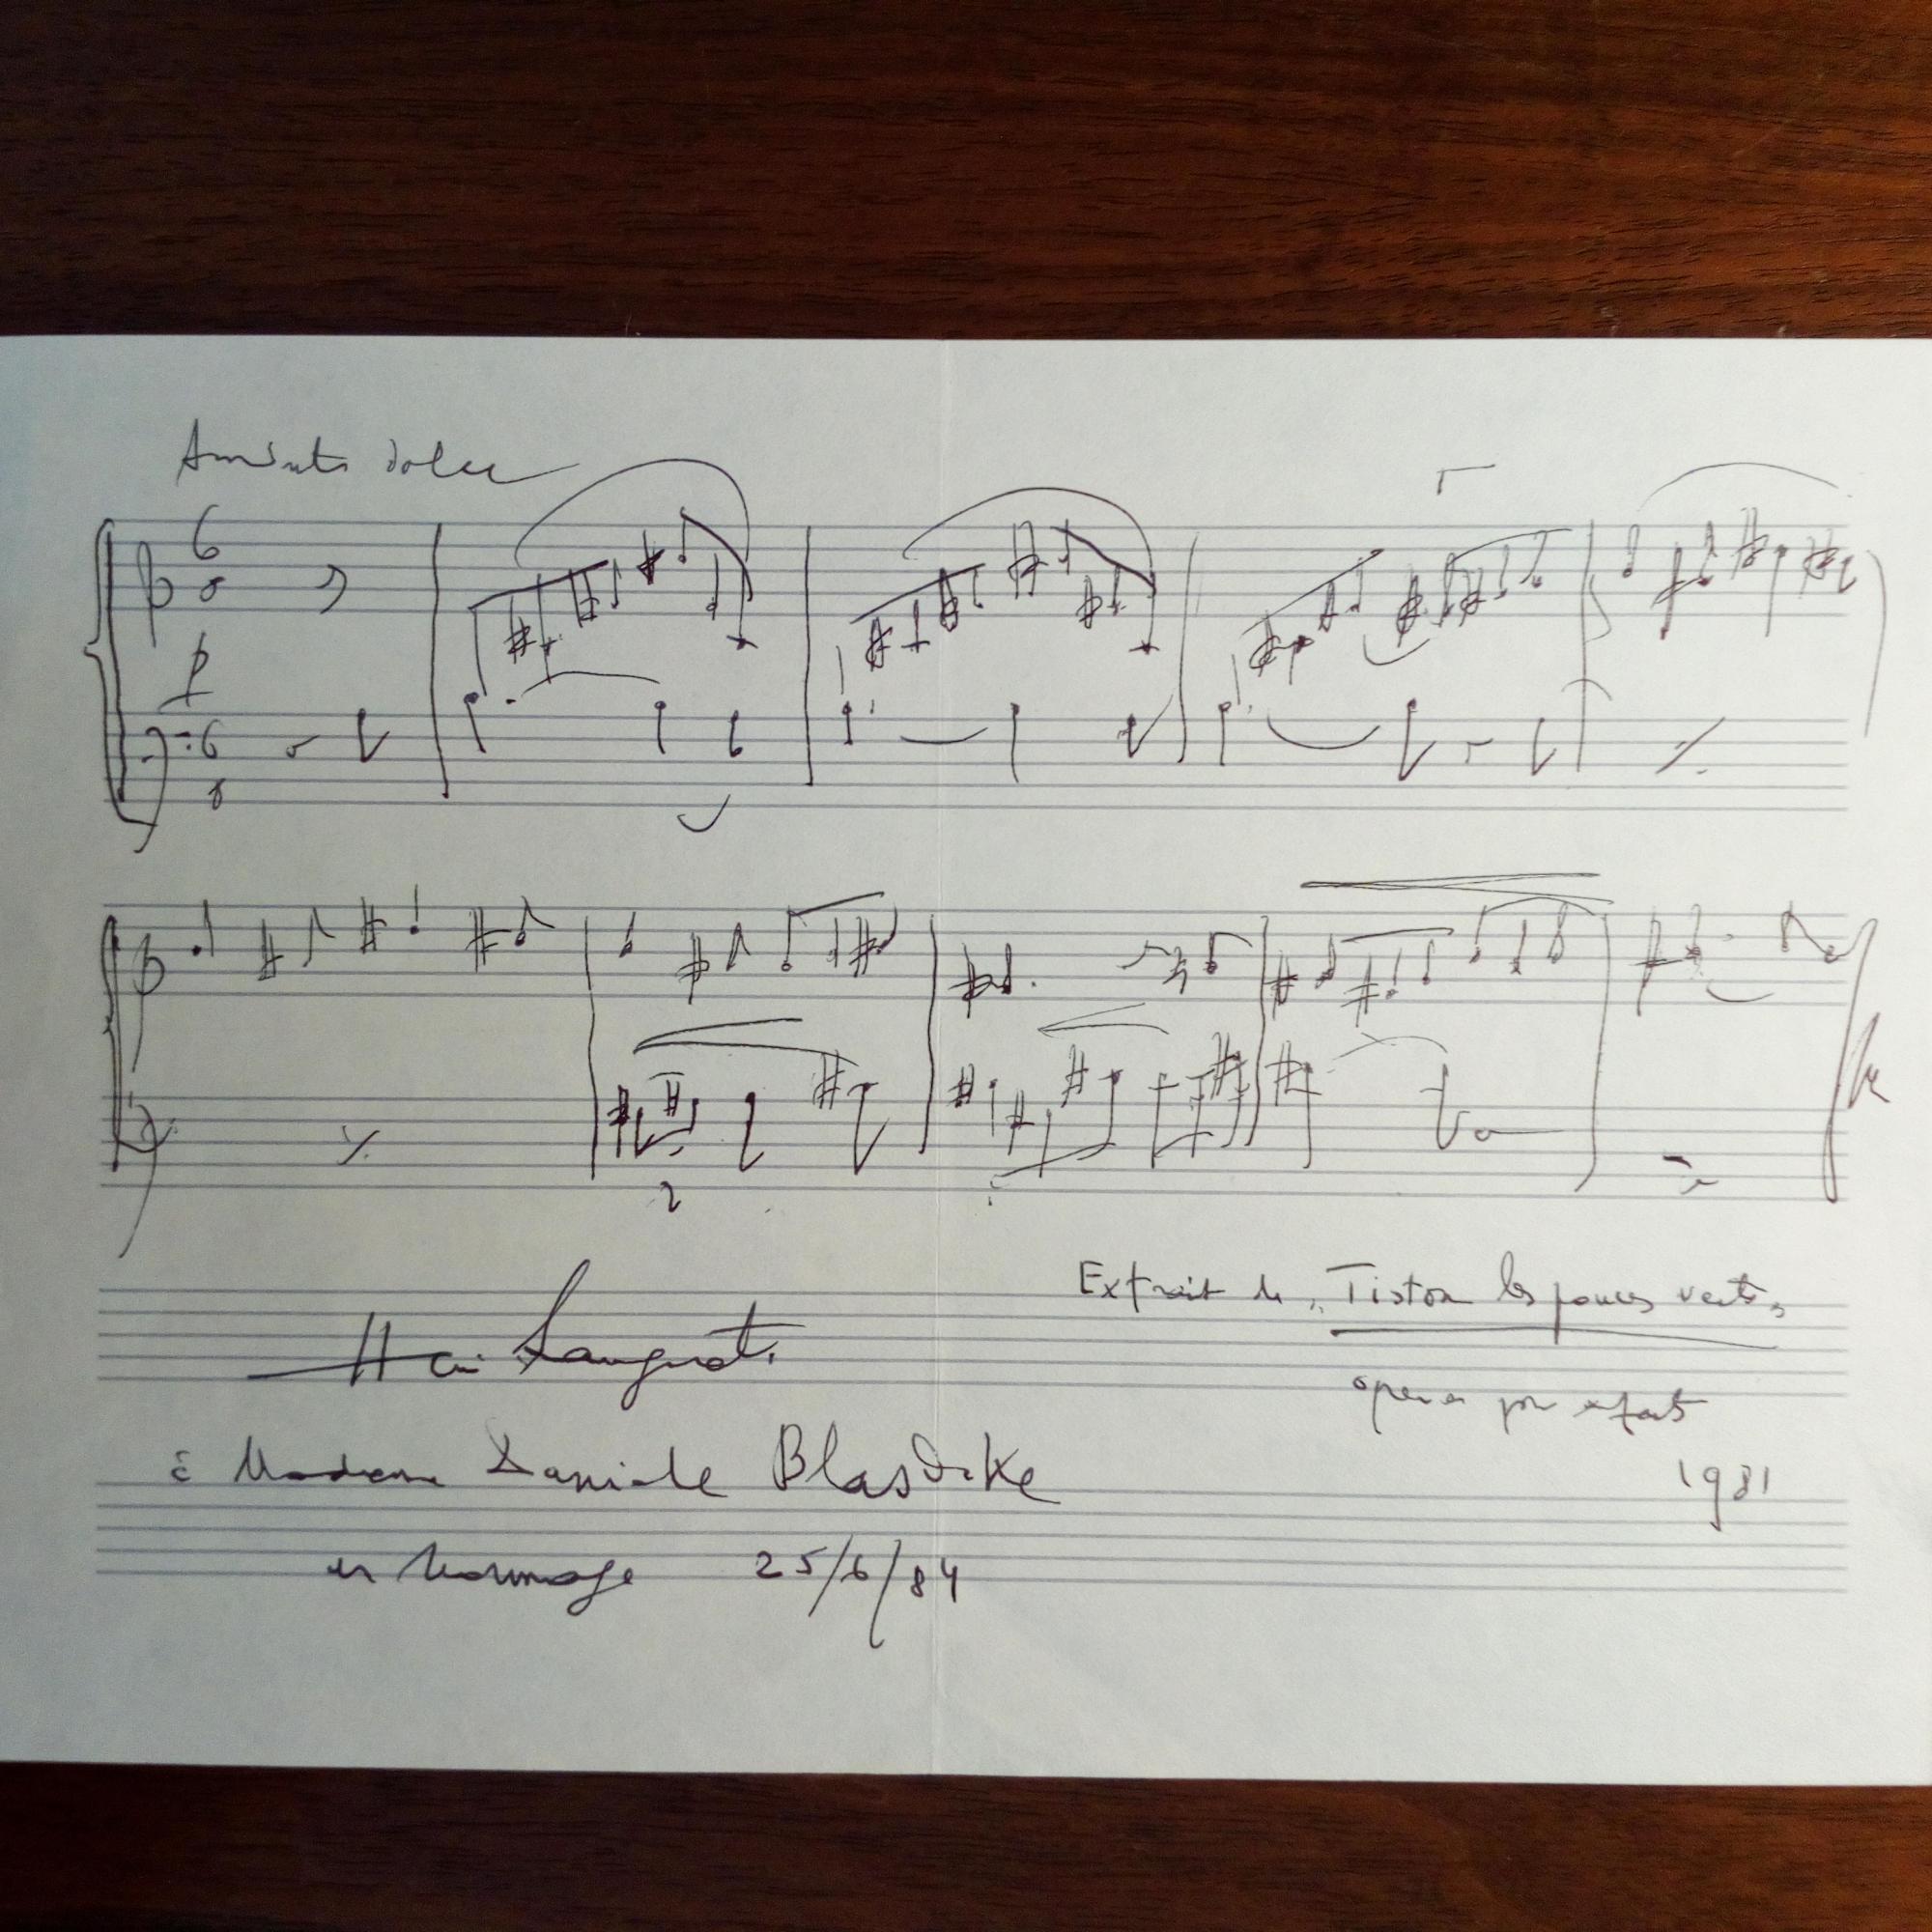 Andante dolce
6
8
p
6
8
2
Henri Sauguet
Extrait de "Tistou les pouces verts"
opéra pour enfants
1981
à Madame Daniele Blasdike
en hommage 25/6/84